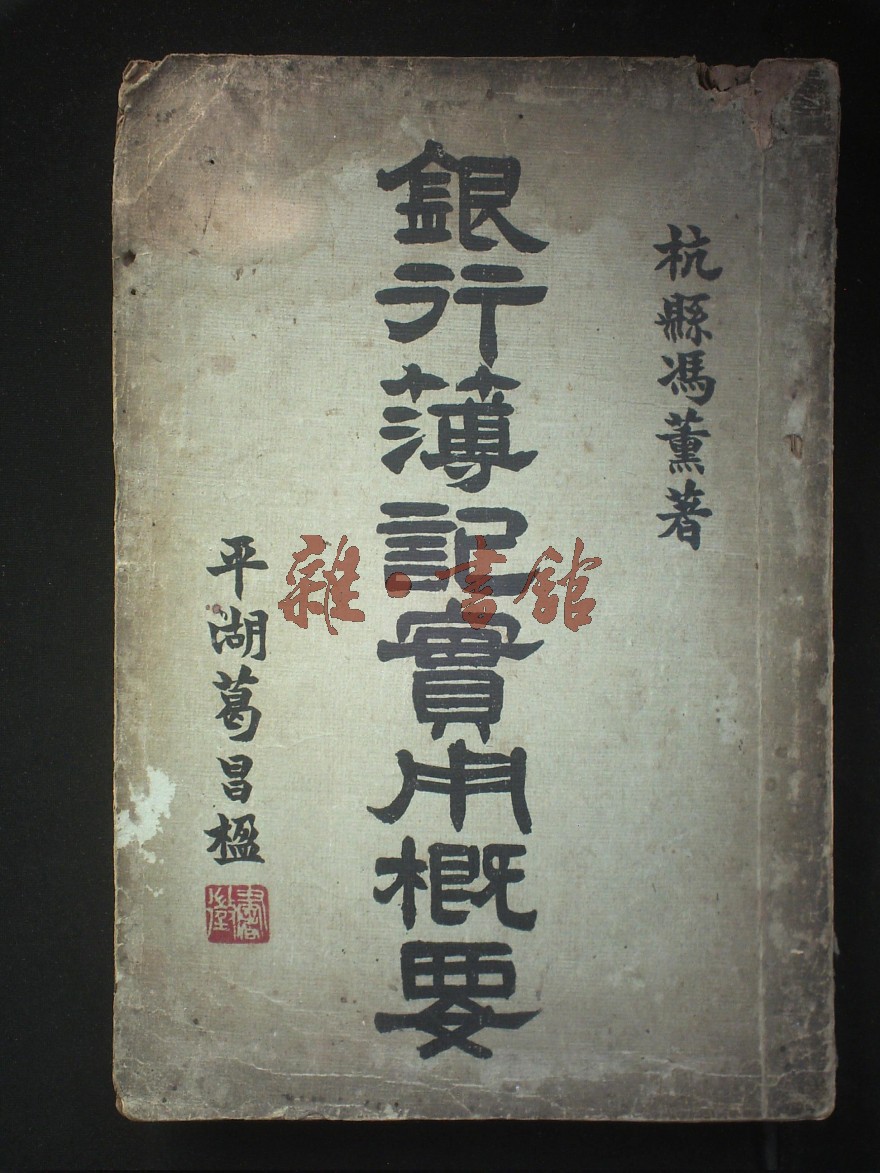 杭縣馮薰著
銀行薄記實用概要
平湖葛昌楹
雜·書館